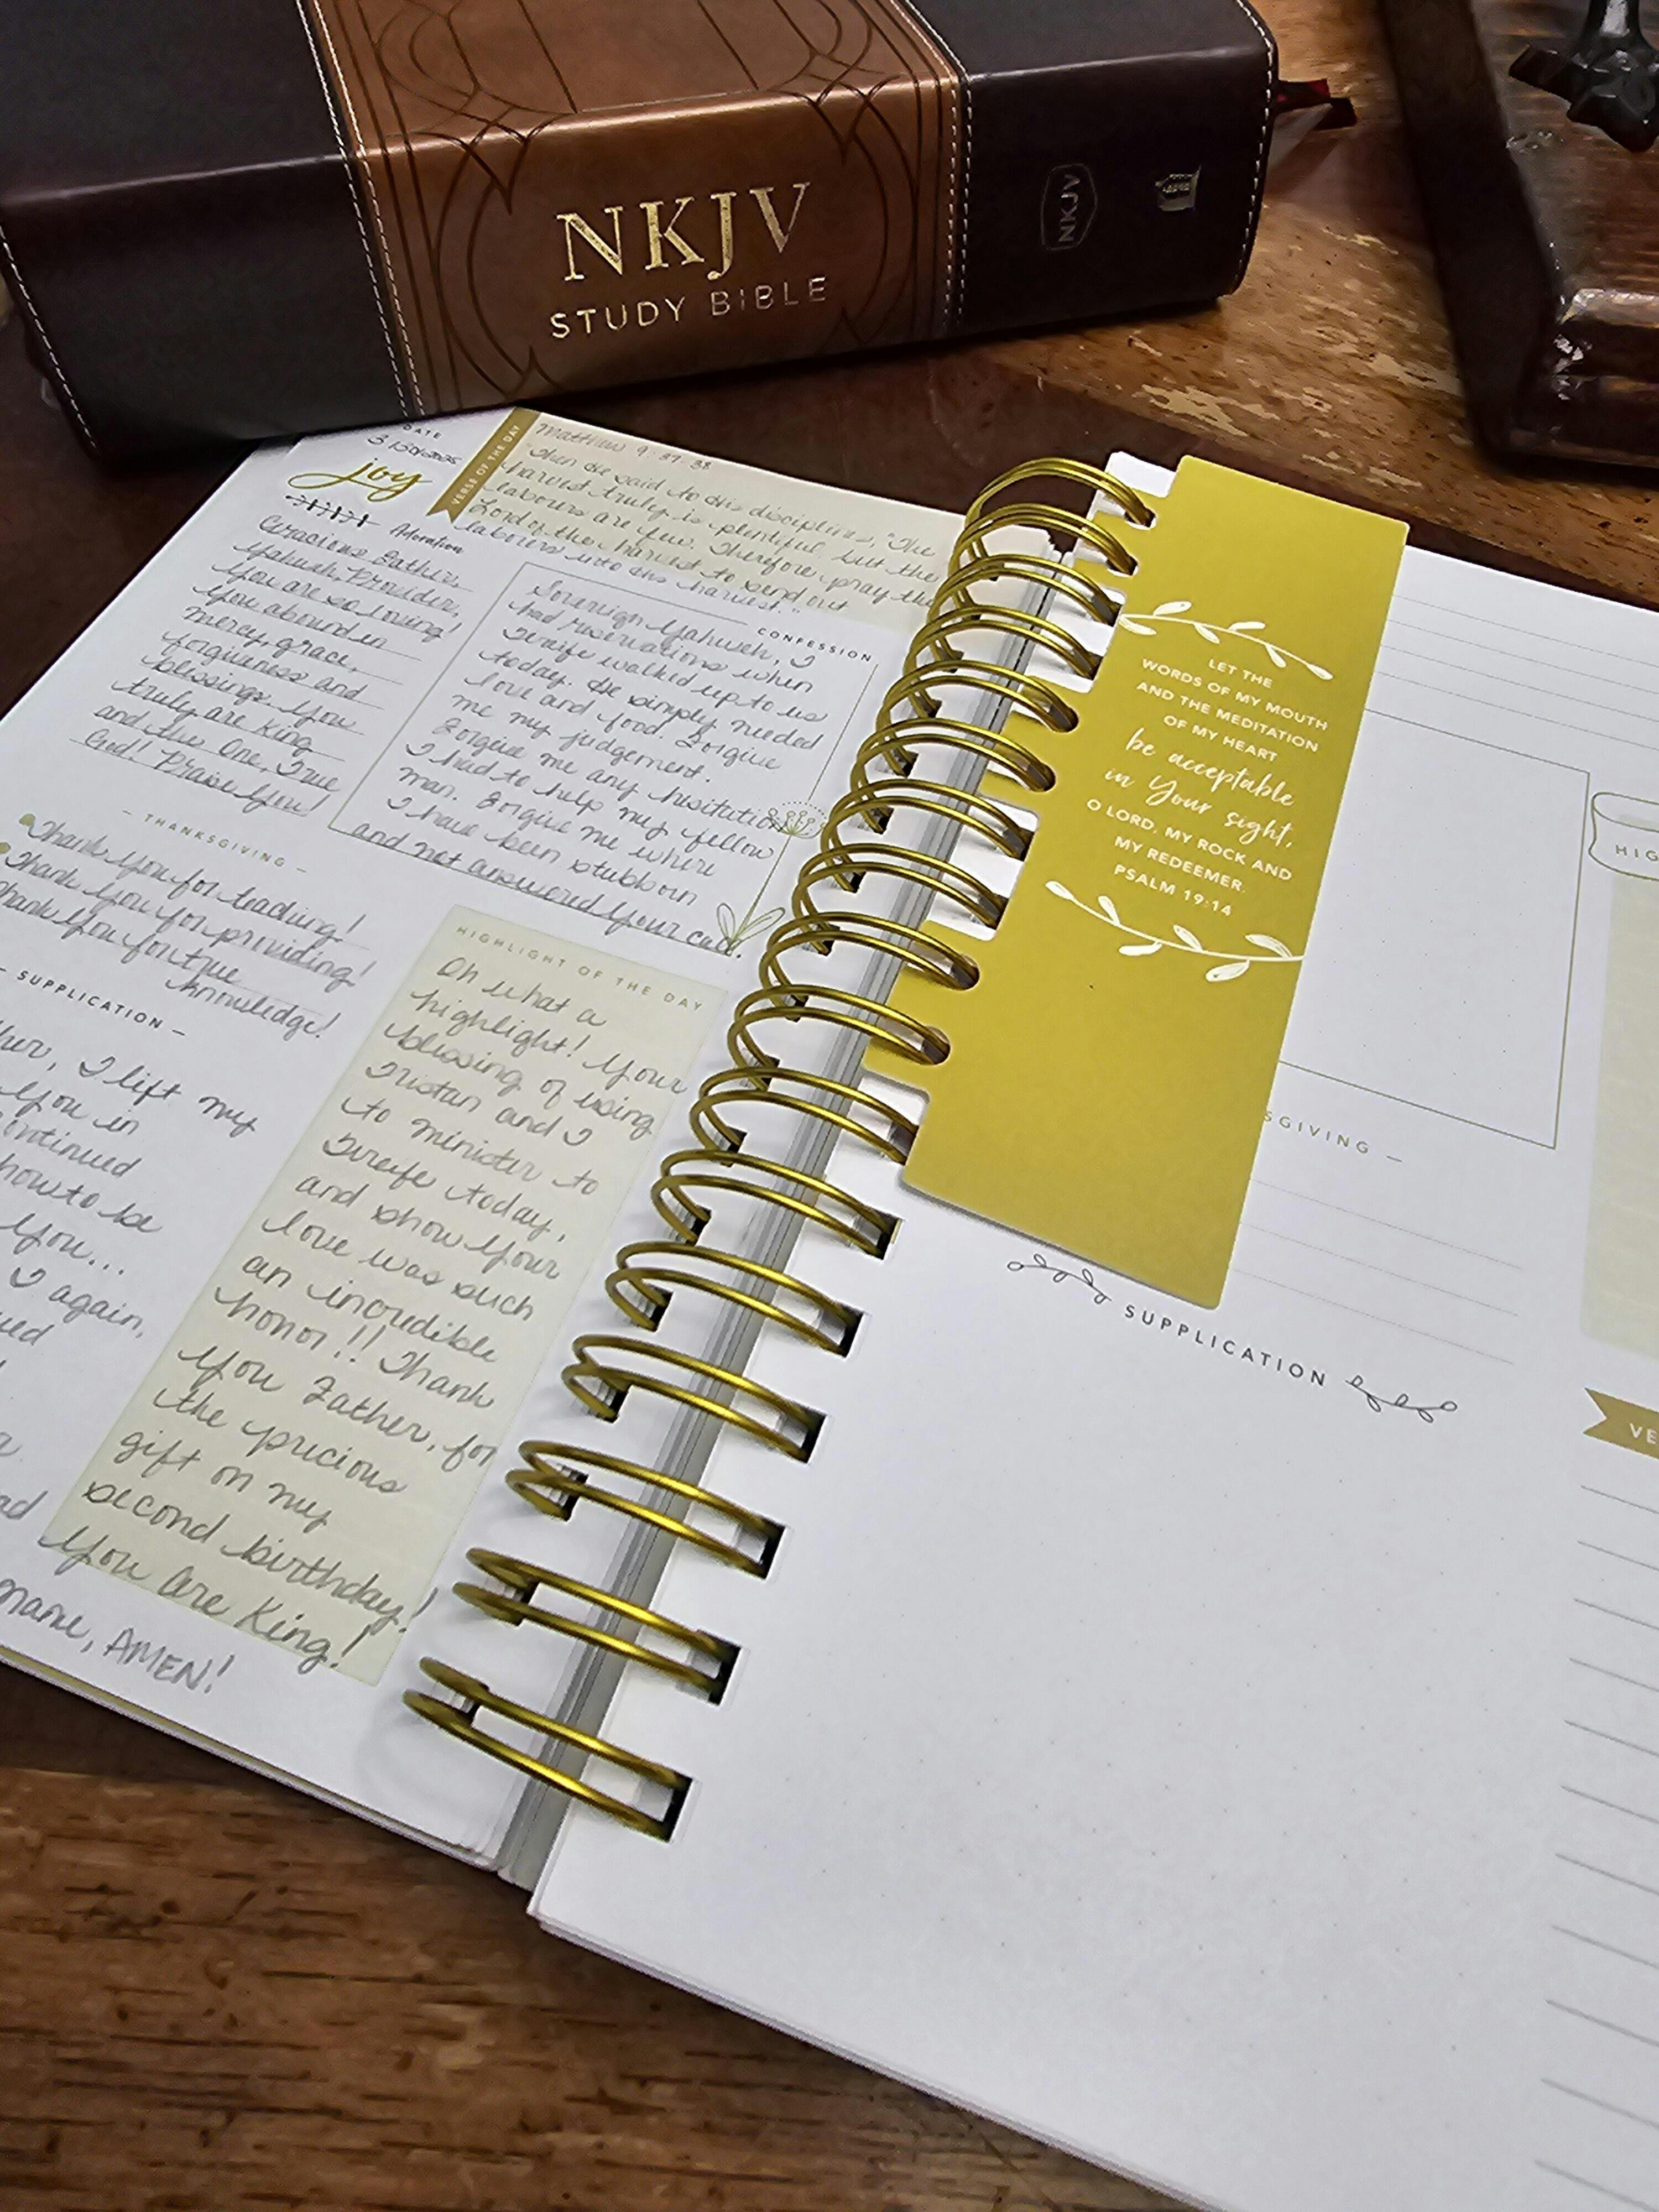 NKJV
STUDY BIBLE
NKJV
DATE
joy
VERSE OF THE DAY
Matthew 9:37-38
"Then He said to His disciples, "The
harvest truly is plentiful, but the
labours are few. Therefore pray the
Lord of the harvest to send out
laborers into His harvest."
Adoration
Gracious Father,
Provider,
You are so loving!
You abound in
mercy, grace,
forgiveness and
blessings. You
truly are King
and the One, True
God! Praise You!
CONFESSION
Sovereign Yahweh, I
had reservations when
walked up to us
today. He simply needed
love and food. Forgive
me my judgement.
Forgive me any hesitation
I had to help my fellow
man. Forgive me where
I have been stubborn
and not answered Your call.
— THANKSGIVING —
Thank You for teaching!
Thank You for providing!
Thank You for true
knowledge!
— SUPPLICATION —
I lift my
You in
how to be
You...
I again,
name, AMEN!
HIGHLIGHT OF THE DAY
Oh what a
highlight! Your
blessing of using
Tristan and I
to minister to
today,
and show Your
love was such
an incredible
honor!! Thank
You Father, for
the precious
gift on my
second birthday!
You are King!
LET THE
WORDS OF MY MOUTH
AND THE MEDITATION
OF MY HEART
be acceptable
in Your sight,
O LORD, MY ROCK AND
MY REDEEMER.
PSALM 19:14
HIG
SGIVING —
SUPPLICATION
VE